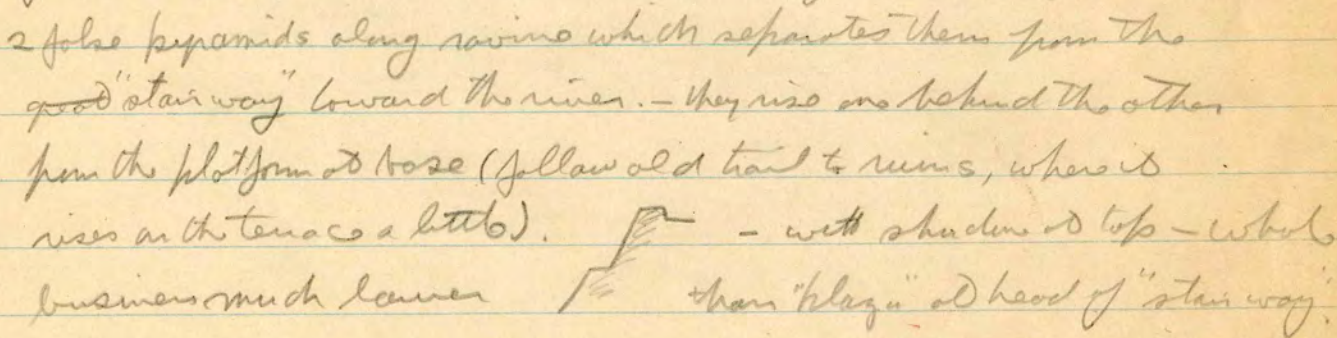 2 false pyramids along ravine which separates them from the
great "stairway" toward the river. – they rise one behind the other
from the platform at base (follow old trail to ruins, where it
rises on the terrace a little). – with shadow at top – whole
business much lower than "plaza" at head of "stairway".